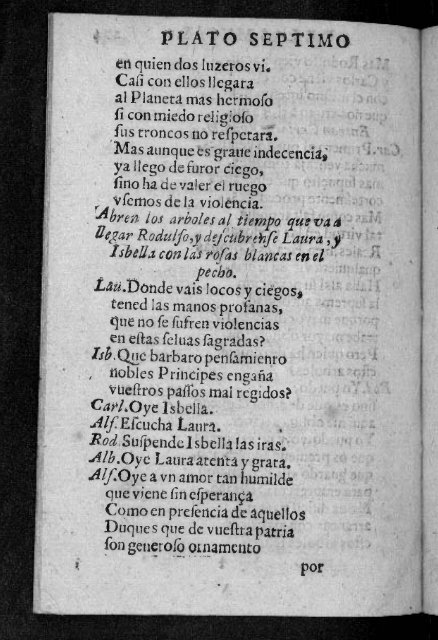 PLATO SEPTIMO
en quien dos luzeros vi.
Casi con ellos llegara
al Planeta mas hermoso
si con miedo religioso
sus troncos no respetara.
Mas aunque es graue indecencia,
ya llego de furor ciego,
sino ha de valer el ruego
vsemos de la violencia.
Abren los arboles al tiempo que va a
llegar Rodulfo, y descubrense Laura, y
Isbella con las rosas blancas en el
pecho.
Lau. Donde vais locos y ciegos,
tened las manos profanas,
que no se sufren violencias
en estas seluas sagradas?
Isb. Que barbaro pensamiento
nobles Principes engaña
vuestros passos mal regidos?
Carl. Oye Isbella.
Alf. Escucha Laura.
Rod. Suspende Isbella las iras.
Alb. Oye Laura atenta y grata.
Alf. Oye a vn amor tan humilde
que viene sin esperança
Como en presencia de aquellos
Duques que de vuestra patria
son generoso ornamento
por